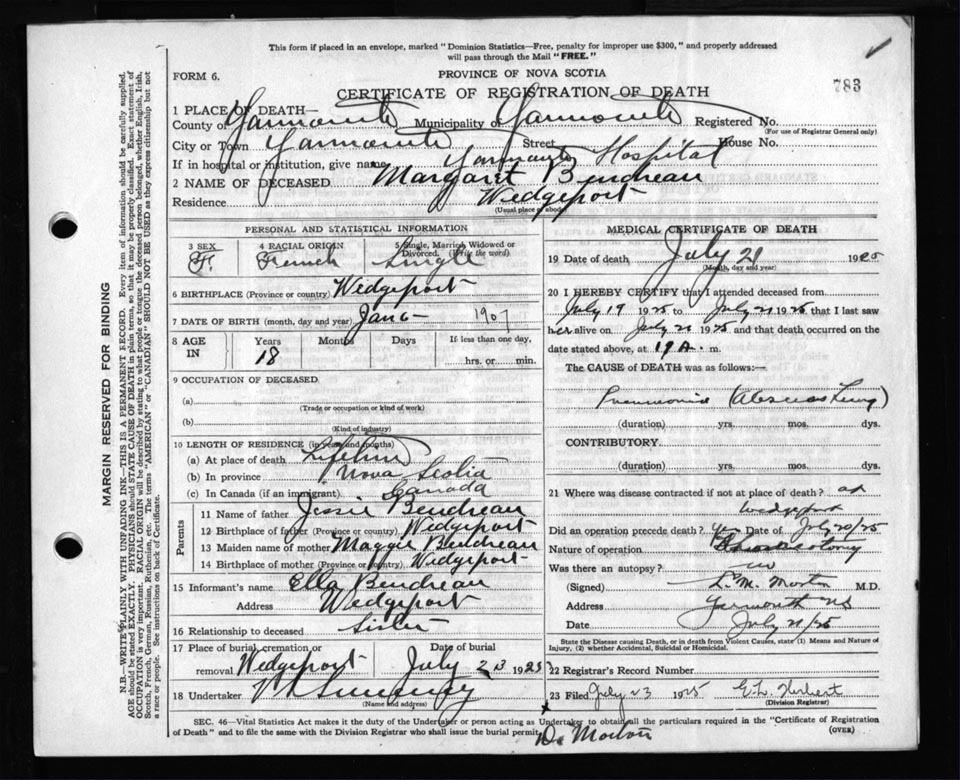 This form if placed in an envelope, marked "Dominion Statistics—Free, penalty for improper use $300," and properly addressed
will pass through the Mail "FREE."
FORM 6.
PROVINCE OF NOVA SCOTIA
783
CERTIFICATE OF REGISTRATION OF DEATH
1 PLACE OF DEATH—
County of Yarmouth Municipality of Yarmouth Registered No.
(For use of Registrar General only)
City or Town Yarmouth Street House No.
If in hospital or institution, give name Yarmouth Hospital
2 NAME OF DECEASED Margaret Beudreau
Residence Wedgeport
(Usual place of abode)
PERSONAL AND STATISTICAL INFORMATION
3 SEX 4 RACIAL ORIGIN 5 Single, Married, Widowed or
Divorced. (Write the word)
F. French Single
6 BIRTHPLACE (Province or country) Wedgeport
7 DATE OF BIRTH (month, day and year) Jan 6— 1907
8 AGE IN Years Months Days If less than one day,
18 hrs. or min.
9 OCCUPATION OF DECEASED
(a)
(Trade or occupation or kind of work)
(b)
(Kind of industry)
10 LENGTH OF RESIDENCE (in years and months)
(a) At place of death Lifetime
(b) In province Nova Scotia
(c) In Canada (if an immigrant) Canada
Parents
11 Name of father Jessie Beudreau
12 Birthplace of father (Province or country) Wedgeport
13 Maiden name of mother Maggie Beudreau
14 Birthplace of mother (Province or country) Wedgeport
15 Informant's name Ella Beudreau
Address Wedgeport
16 Relationship to deceased Sister
17 Place of burial, cremation or Date of burial
removal Wedgeport July 23 1925
18 Undertaker Sweeney
(Name and address)
MEDICAL CERTIFICATE OF DEATH
19 Date of death July 21 1925
(Month, day and year)
20 I HEREBY CERTIFY that I attended deceased from
July 19 1925 to July 21 1925 that I last saw
her alive on July 21 1925 and that death occurred on
date stated above, at A. m.
The CAUSE of DEATH was as follows:—
Pneumonia (Abscess Lung)
(duration) yrs. mos. days.
CONTRIBUTORY
(duration) yrs. mos. dys.
21 Where was disease contracted if not at place of death? at
Wedgeport
Did an operation precede death? Yes Date of July 20/25
Nature of operation
Was there an autopsy? no
(Signed) L. M. Morton M.D.
Address Yarmouth NS
Date July 21/25
State the Disease causing Death, or in death from Violent Causes, state (1) Means and Nature of
Injury, (2) whether Accidental, Suicidal or Homicidal.
22 Registrar's Record Number
23 Filed July 23 1925 E. L. Herbert
(Division Registrar)
SEC. 46—Vital Statistics Act makes it the duty of the Undertaker or person acting as Undertaker to obtain all the particulars required in the "Certificate of Registration
of Death" and to file the same with the Division Registrar who shall issue the burial permit.
(OVER)
x Dr Morton
MARGIN RESERVED FOR BINDING
N.B.—WRITE PLAINLY WITH UNFADING INK—THIS IS A PERMANENT RECORD. Every item of information should be carefully supplied.
AGE should be stated EXACTLY. PHYSICIANS should STATE CAUSE OF DEATH in plain terms, so that it may be properly classified. Exact statement of
OCCUPATION is very important. RACIAL ORIGIN will be described by stating to what people or tongue the deceased person belonged, whether English, Irish,
Scotch, French, German, Russian, Ruthenian, etc. The terms "AMERICAN" or "CANADIAN" SHOULD NOT BE USED as they express citizenship but not
a race or people. See instructions on back of Certificate.